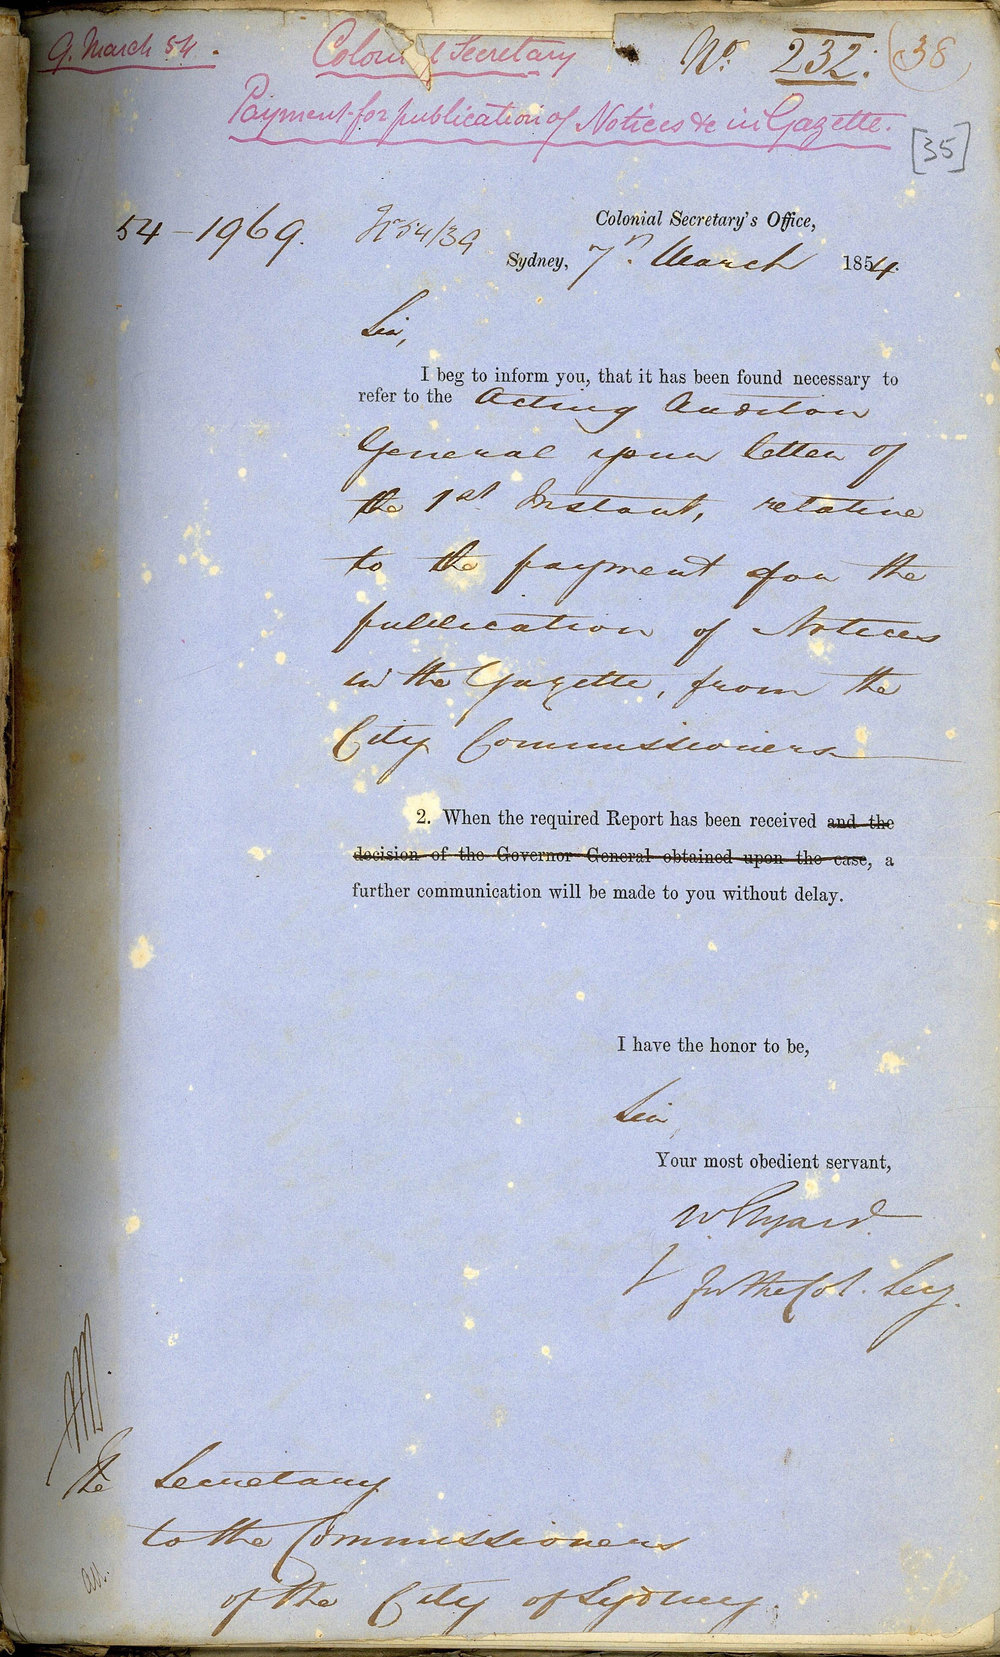 9. March 54.
Colonial Secretary
No. 232.
38
Payment for publication of Notices &c in Gazette.
[35]
54-1969.
54/39
Colonial Secretary's Office,
Sydney, 7th March 1854.
Sir,
I beg to inform you, that it has been found necessary to
refer to the Acting Auditor
General your letter of
the 1st Instant, relative
to the payment for the
publication of Notices
in the Gazette, from the
City Commissioners
2. When the required Report has been received and the
decision of the Governor General obtained upon the case, a
further communication will be made to you without delay.
I have the honor to be,
Sir
Your most obedient servant,
W Elyard
for the Col. Secy.
The Secretary
to the Commissioners
of the City of Sydney